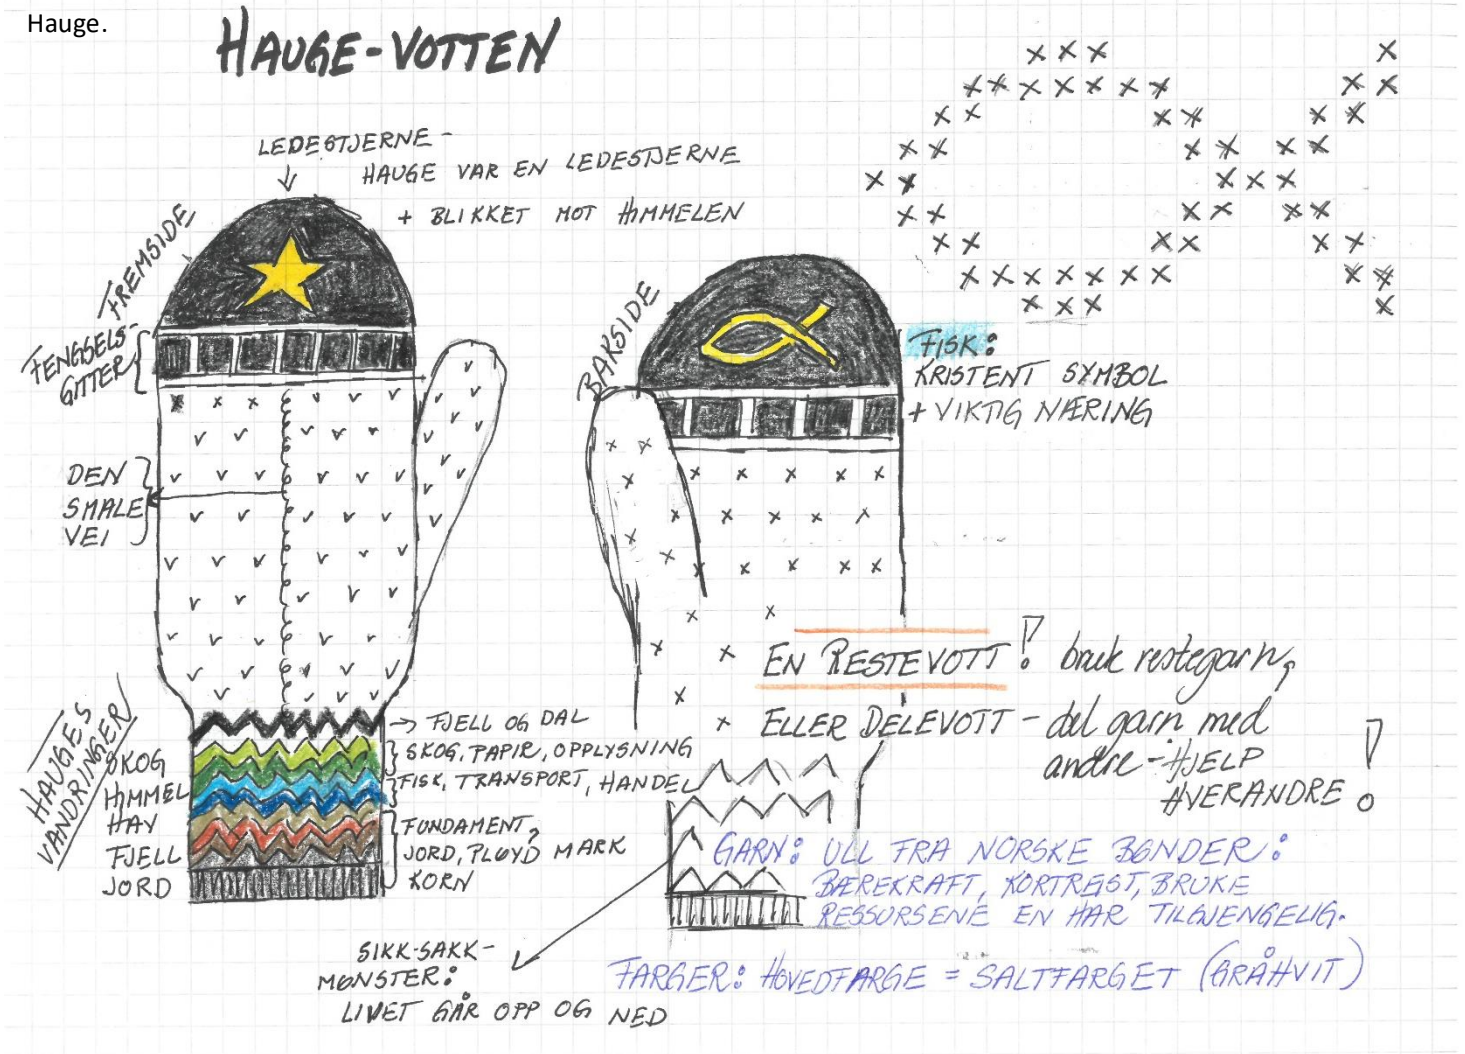 Hauge.
HAUGE-VOTTEN
LEDESTJERNE -
HAUGE VAR EN LEDESTJERNE
+ BLIKKET MOT HIMMELEN
FREMSIDE
FENGSELS-
GITTER
DEN
SMALE
VEI
BAKSIDE
FISK:
KRISTENT SYMBOL
+ VIKTIG NÆRING
EN RESTEVOTT! bruk restegarn,
ELLER DELEVOTT - del garn med
andre - HJELP
HVERANDRE!
HAUGES
VANDRINGER
SKOG
HIMMEL
HAV
FJELL
JORD
→ FJELL OG DAL
SKOG, PAPIR, OPPLYSNING
FISK, TRANSPORT, HANDEL
FUNDAMENT,
JORD, PLØYD MARK
KORN
GARN: ULL FRA NORSKE BØNDER:
BÆREKRAFT, KORTREIST, BRUKE
RESSURSENE EN HAR TILGJENGELIG.
SIKK-SAKK-
MØNSTER:
LIVET GÅR OPP OG NED
FARGER: HOVEDFARGE = SALTFARGET (GRÅHVIT)